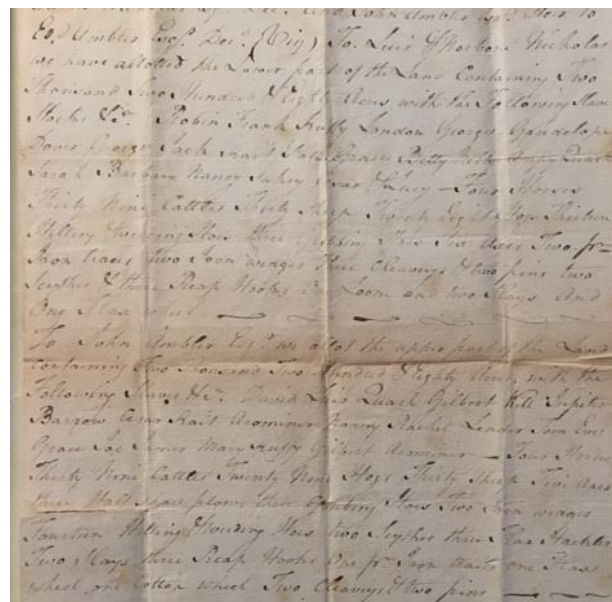 and John Ambler Esqr. Heir to
Edd. Ambler Esqr. Decd. (Viz) To Wilson Nicholas
we have allotted the Lower part of the Land Containing Two
Thousand Two Hundred & Eighty Acres with the Following Slaves
Stocks &c. Robin Frank London George
George Jack Quash
Sarah Barbary Nancy Cesar & Lucy — Four Horses
Thirty Nine Cattles Thirty Sheep Twenty Eight Hogs
Hilling Weeding Hoes three Grubbing Hoes Axes Two pr
Iron traces two Iron wedges three Cleaveys & two pins two
Scythes & three Reap Hooks One Loom and two Slays And
One Flax wheel
To John Ambler Esqr. we allot the upper part of the Land
containing Two Thousand Two Hundred & Eighty Acres with the
Following Slaves &c. David Quash Gilbert Kitt Jupiter
Cesar Arominor Nanny Rachel Leander Tom
Grace Joe James Mary Gilbert Arominor — Four Horses
Thirty Nine Cattles Twenty Nine Hogs Thirty Sheep Axes
three plows three Grubbing Hoes Two Iron wedges
Fourteen Hilling & Weeding Hoes two Scythes three Flax Hackles
Two Slays three Reap Hooks One pr. Iron one Flax
wheel one Cotton wheel Two Cleaveys & two pins